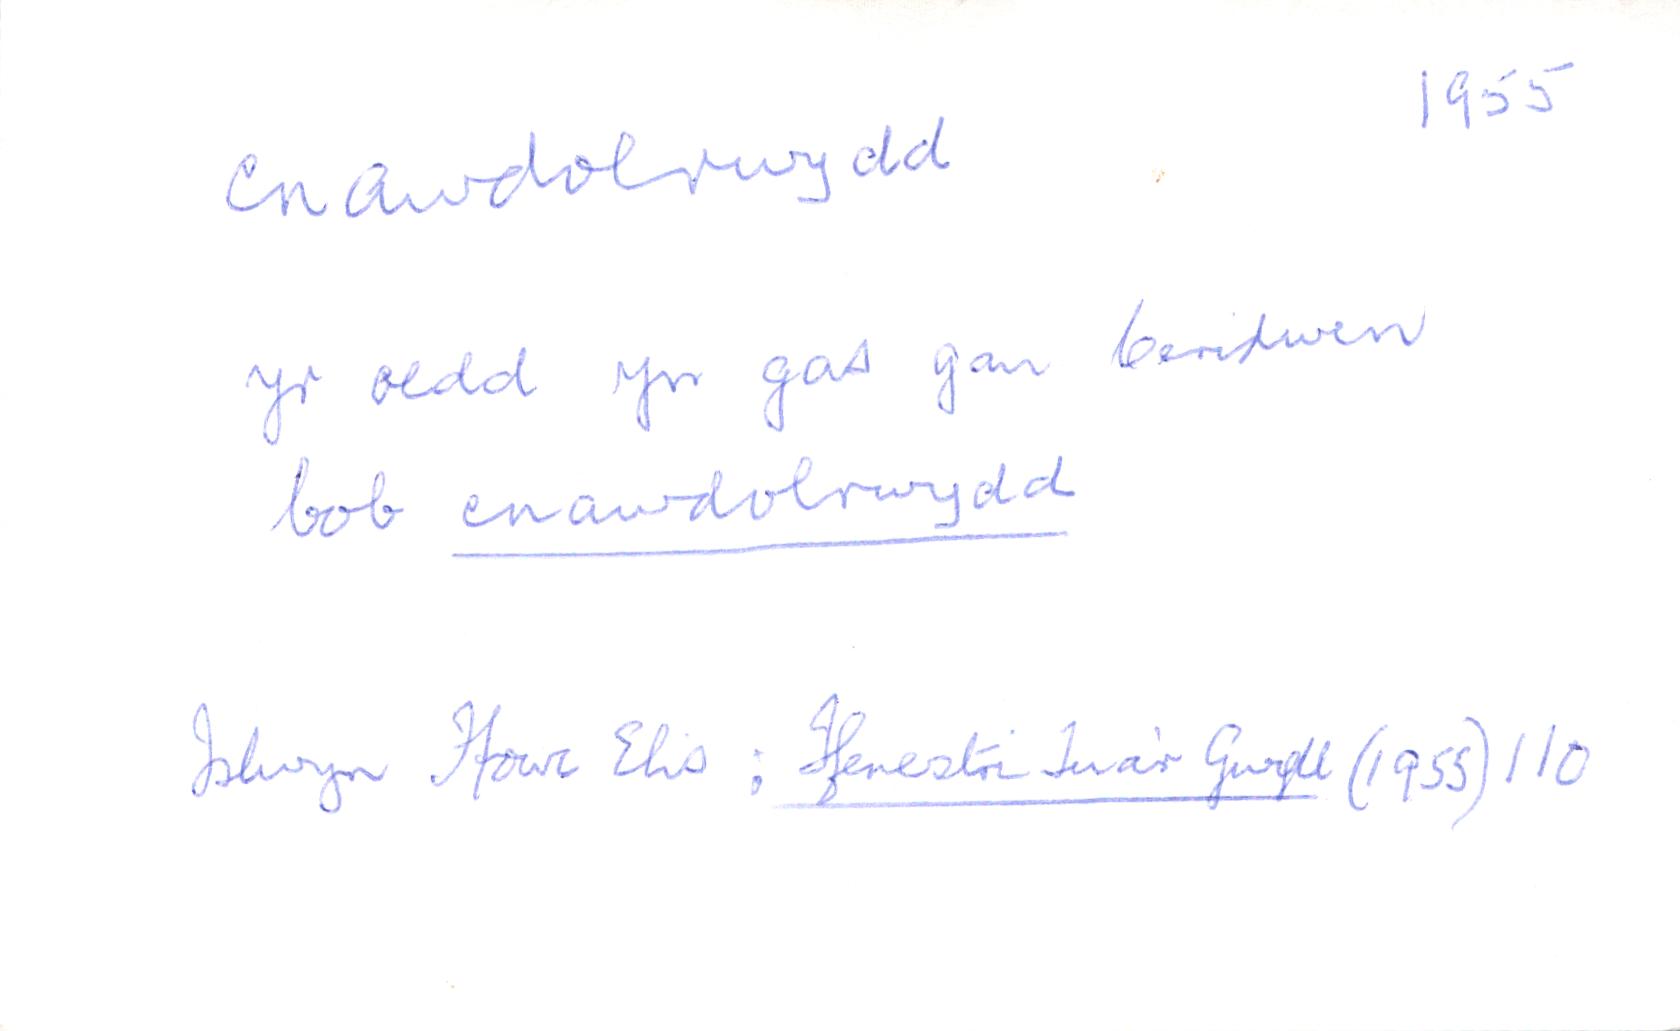 1955
cnawdolrwydd
yr oedd yn gas gan Ceridwen
bob cnawdolrwydd
Islwyn Ffowc Elis ; Ffenestri Tua'r Gwyll (1955) 110